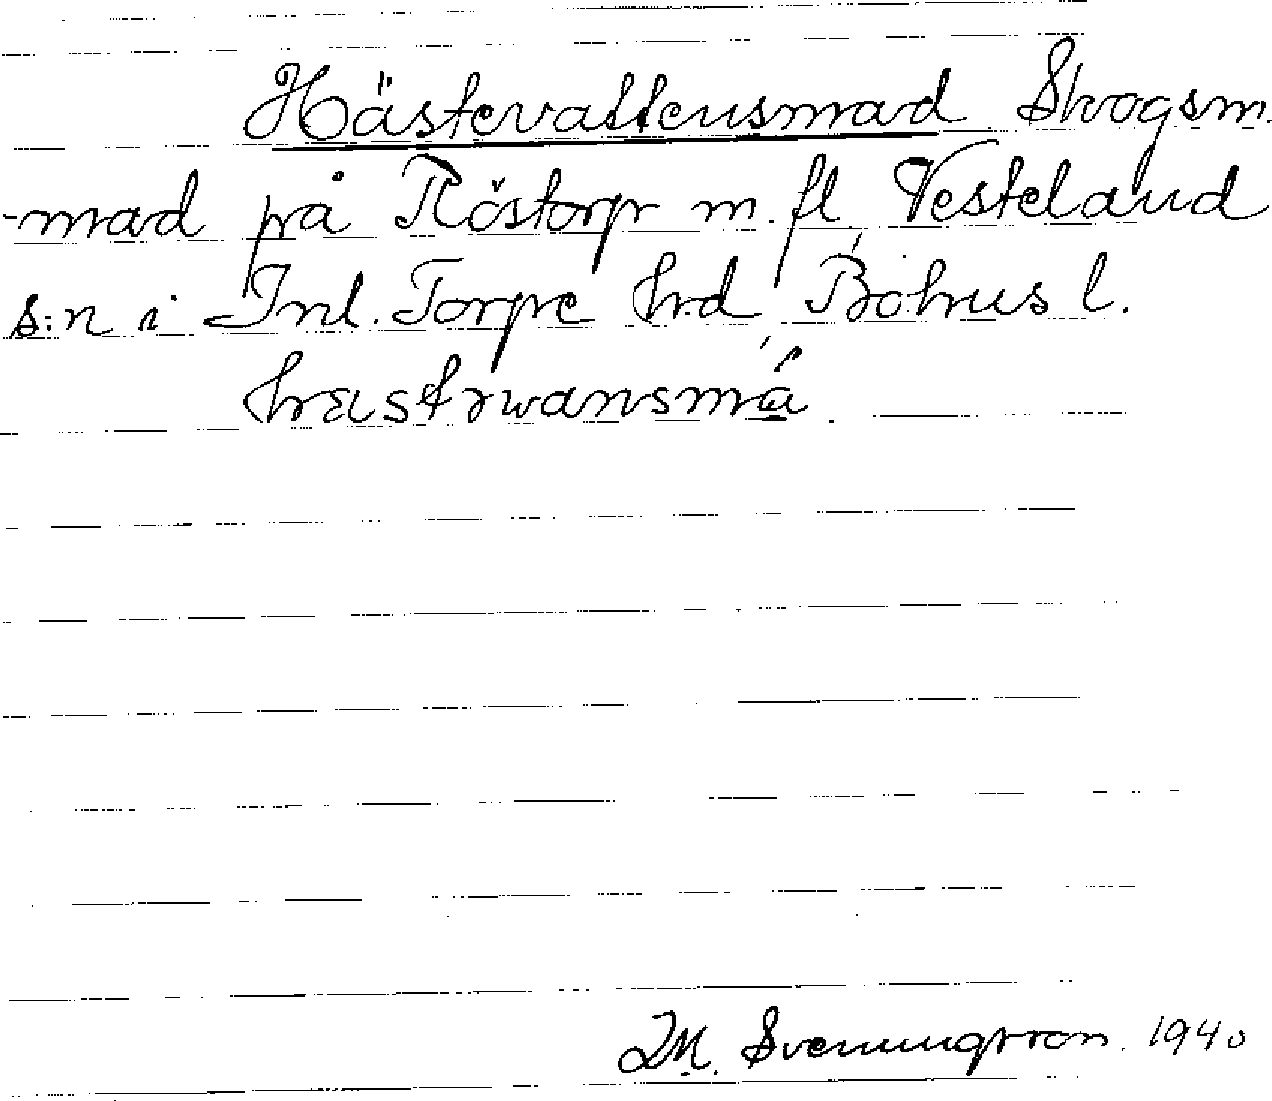 Hästevattensmad Skogsm.
-mad på Röstorp m. fl. Vesteland
s:n i Inl. Torpe hrd Bohus l.
J.M. Svenungsson. 1940